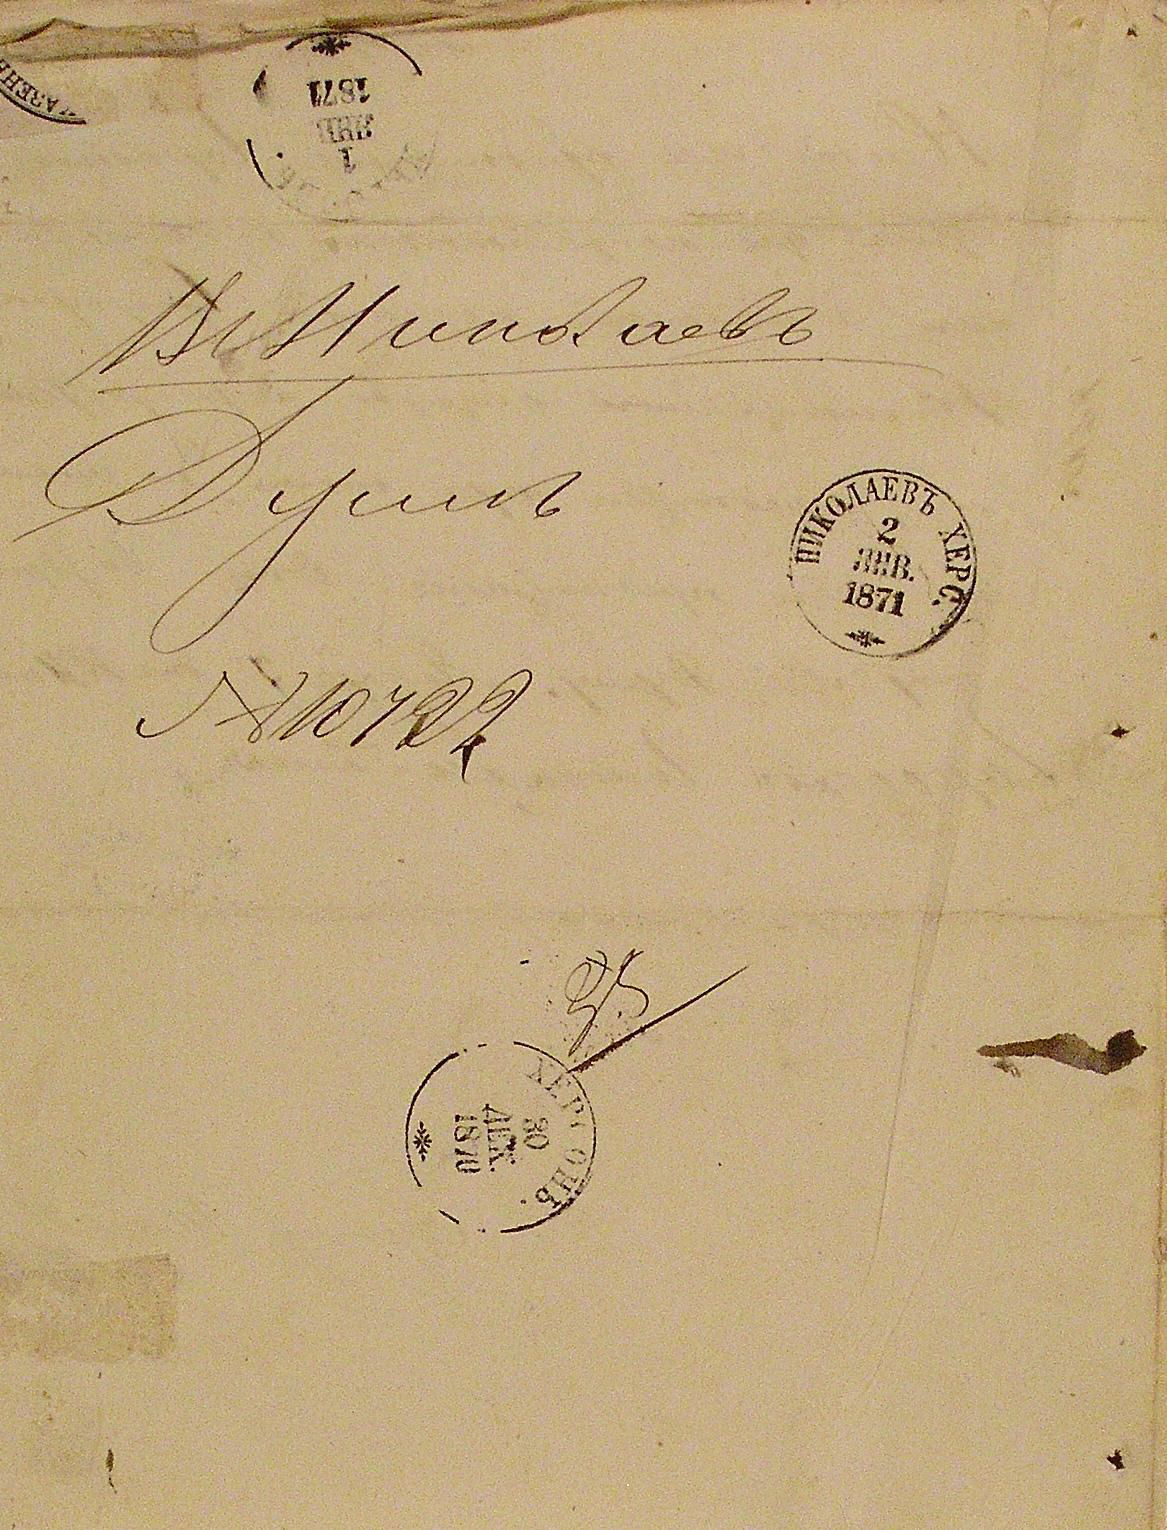 1
ЯНВ
1871
Въ Николаевъ
Думѣ
НИКОЛАЕВЪ ХЕРС.
2
ЯНВ.
1871
№ 10722
ХЕРСОНЪ.
30
ДЕК.
1870